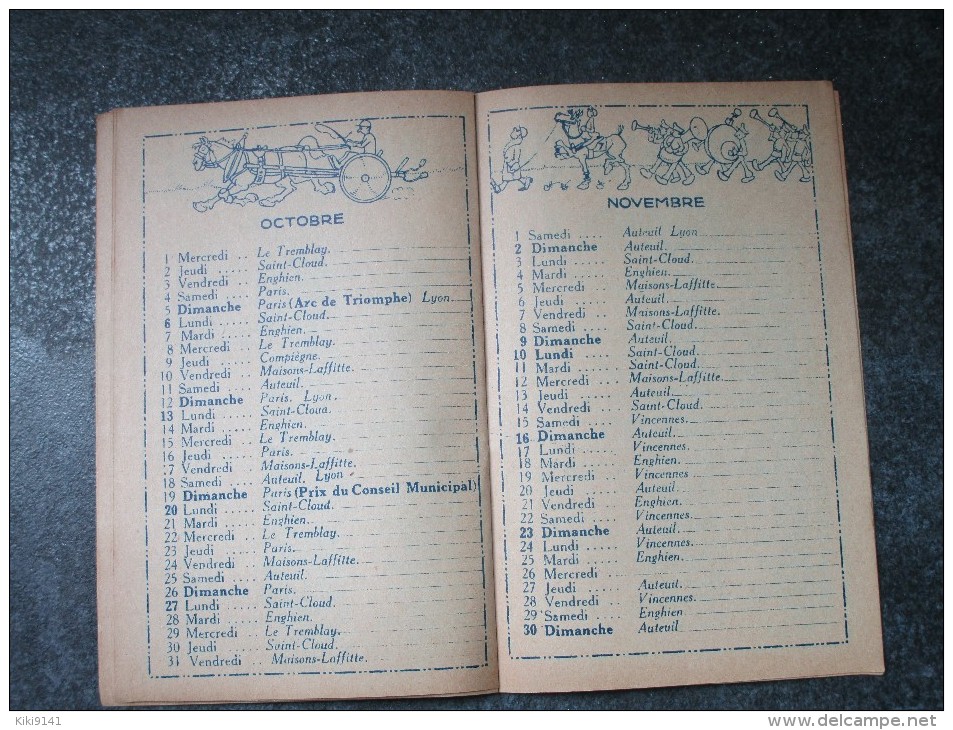 OCTOBRE
1 Mercredi .. Le Tremblay.
2 Jeudi ..... Saint-Cloud.
3 Vendredi .. Enghien.
4 Samedi ... Paris.
5 Dimanche Paris (Arc de Triomphe) Lyon
6 Lundi ..... Saint-Cloud.
7 Mardi .... Enghien.
8 Mercredi .. Le Tremblay.
9 Jeudi ..... Compiègne.
10 Vendredi .. Maisons-Laffitte.
11 Samedi ... Auteuil.
12 Dimanche Paris. Lyon.
13 Lundi ..... Saint-Cloud.
14 Mardi .... Enghien.
15 Mercredi .. Le Tremblay.
16 Jeudi ..... Paris.
17 Vendredi .. Maisons-Laffitte.
18 Samedi ... Auteuil. Lyon
19 Dimanche Paris (Prix du Conseil Municipal)
20 Lundi ..... Saint-Cloud.
21 Mardi .... Enghien.
22 Mercredi .. Le Tremblay.
23 Jeudi ..... Paris.
24 Vendredi .. Maisons-Laffitte.
25 Samedi ... Auteuil.
26 Dimanche Paris.
27 Lundi ..... Saint-Cloud.
28 Mardi .... Enghien.
29 Mercredi .. Le Tremblay.
30 Jeudi ..... Saint-Cloud.
31 Vendredi .. Maisons-Laffitte.
NOVEMBRE
1 Samedi .... Auteuil Lyon
2 Dimanche Auteuil.
3 Lundi ..... Saint-Cloud.
4 Mardi .... Enghien
5 Mercredi .. Maisons-Laffitte
6 Jeudi ..... Auteuil.
7 Vendredi .. Maisons-Laffitte.
8 Samedi .... Saint-Cloud.
9 Dimanche Auteuil.
10 Lundi .... Saint-Cloud.
11 Mardi ..... Saint-Cloud.
12 Mercredi .. Maisons-Laffitte.
13 Jeudi ..... Auteuil.
14 Vendredi .. Saint-Cloud.
15 Samedi .... Vincennes.
16 Dimanche Auteuil.
17 Lundi ..... Vincennes.
18 Mardi .... Enghien.
19 Mercredi .. Vincennes
20 Jeudi ..... Auteuil.
21 Vendredi .. Enghien.
22 Samedi .... Vincennes.
23 Dimanche Auteuil.
24 Lundi ..... Vincennes.
25 Mardi ..... Enghien.
26 Mercredi ..
27 Jeudi ..... Auteuil.
28 Vendredi .. Vincennes.
29 Samedi .... Enghien
30 Dimanche Auteuil
Kiki9141
www.delcampe.net